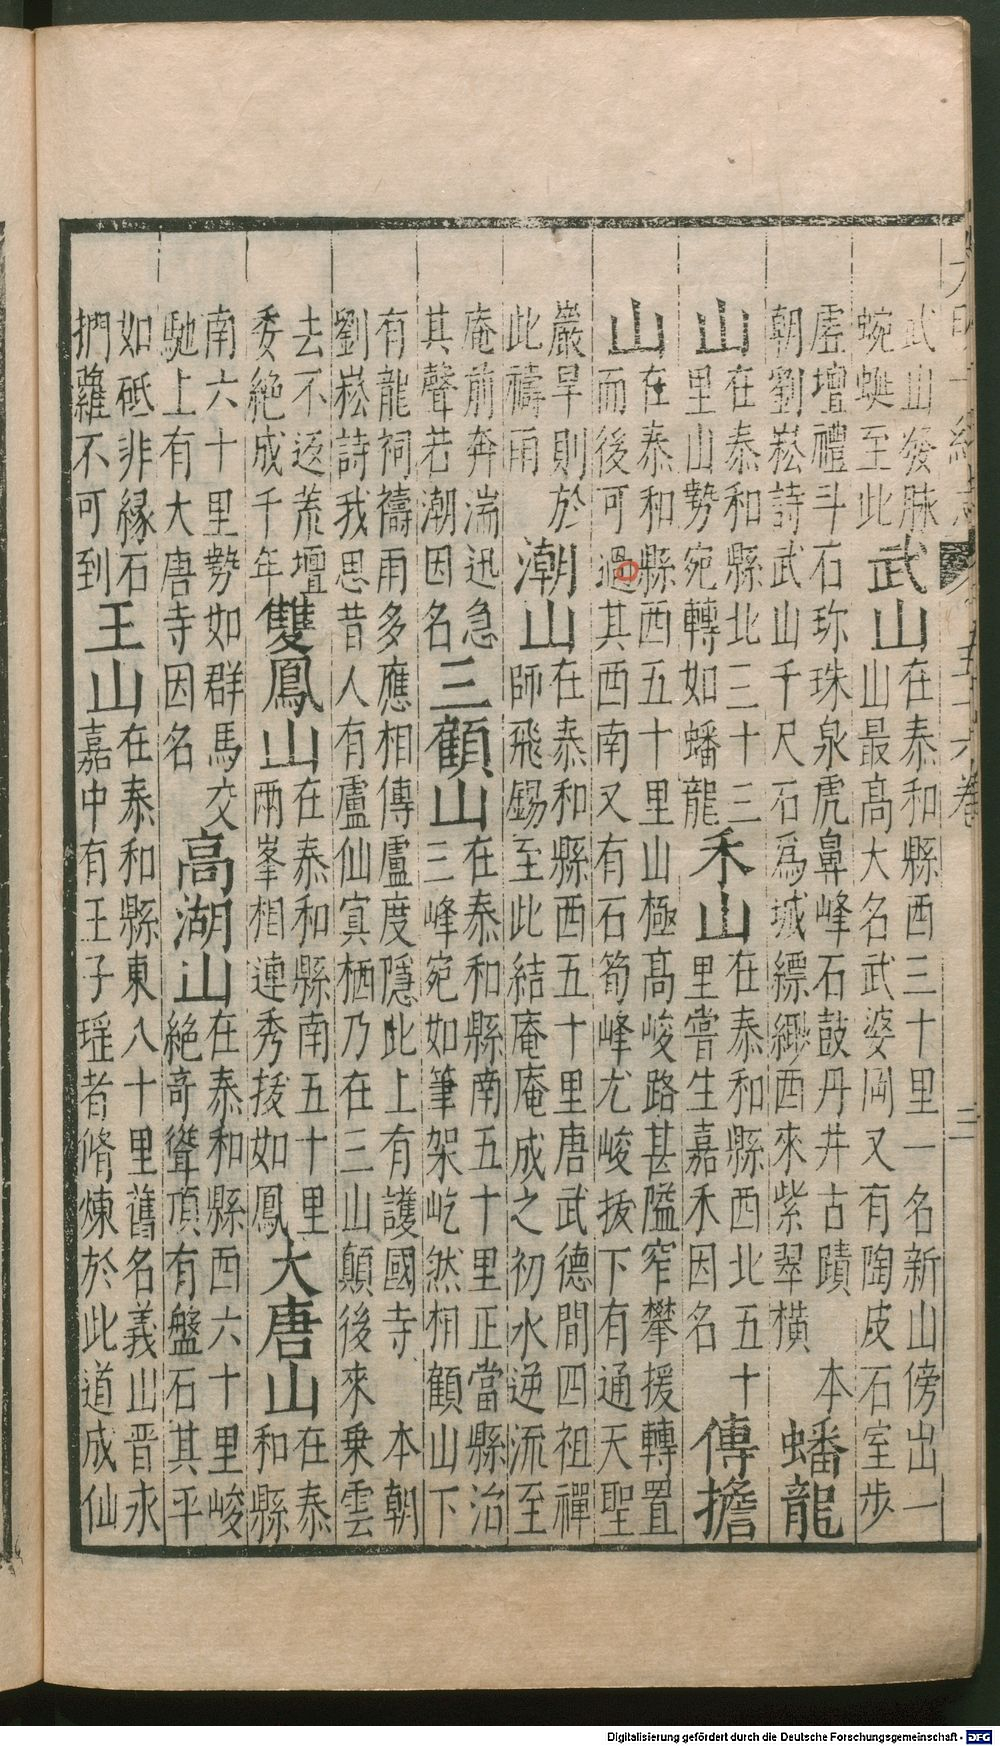 武山發脉
蜿蜒至此
武山
在泰和縣西三十里一名新山傍出一
山最高大名武婆岡又有陶皮石室步
虛壇禮斗石珎珠泉虎鼻峰石鼓丹井古蹟　本
朝劉崧詩武山千尺石為城縹緲西來紫翠橫
蟠龍
山
在泰和縣北三十三
里山勢宛轉如蟠龍
禾山
在泰和縣西北五十
里嘗生嘉禾因名
傳擔
山
在泰和縣西五十里山極高峻路甚隘窄攀援轉置
而後可過其西南又有石筍峰尤峻拔下有通天聖
巖旱則於
此禱雨
潮山
在泰和縣西五十里唐武德間四祖禪
師飛錫至此結庵庵成之初水逆流至
庵前奔湍迅急
其聲若潮因名
三顧山
在泰和縣南五十里正當縣治
三峰宛如筆架屹然相顧山下
有龍祠禱雨多應相傳盧度隱此上有護國寺　本朝
劉崧詩我思昔人有盧仙寘栖乃在三山顛後來乗雲
去不返荒壇
委絕成千年
雙鳳山
在泰和縣南五十里
兩峯相連秀拔如鳳
大唐山
在泰
和縣
南六十里勢如群馬交
馳上有大唐寺因名
高湖山
在泰和縣西六十里峻
絕奇聳頂有盤石其平
如砥非縁石
捫蘿不可到
王山
在泰和縣東八十里舊名義山晋永
嘉中有王子瑶者脩煉於此道成仙
Digitalisierung gefördert durch die Deutsche Forschungsgemeinschaft - DFG